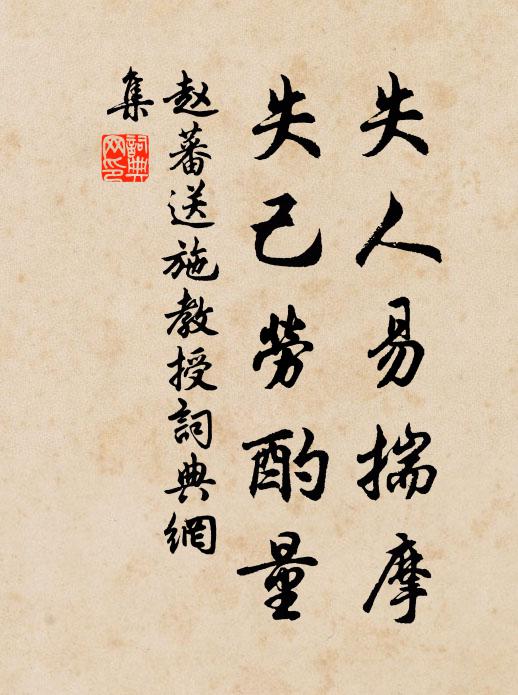 失人易揣摩
失己勞酌量
赵蕃送施教授詞典網
集
詞典
网印